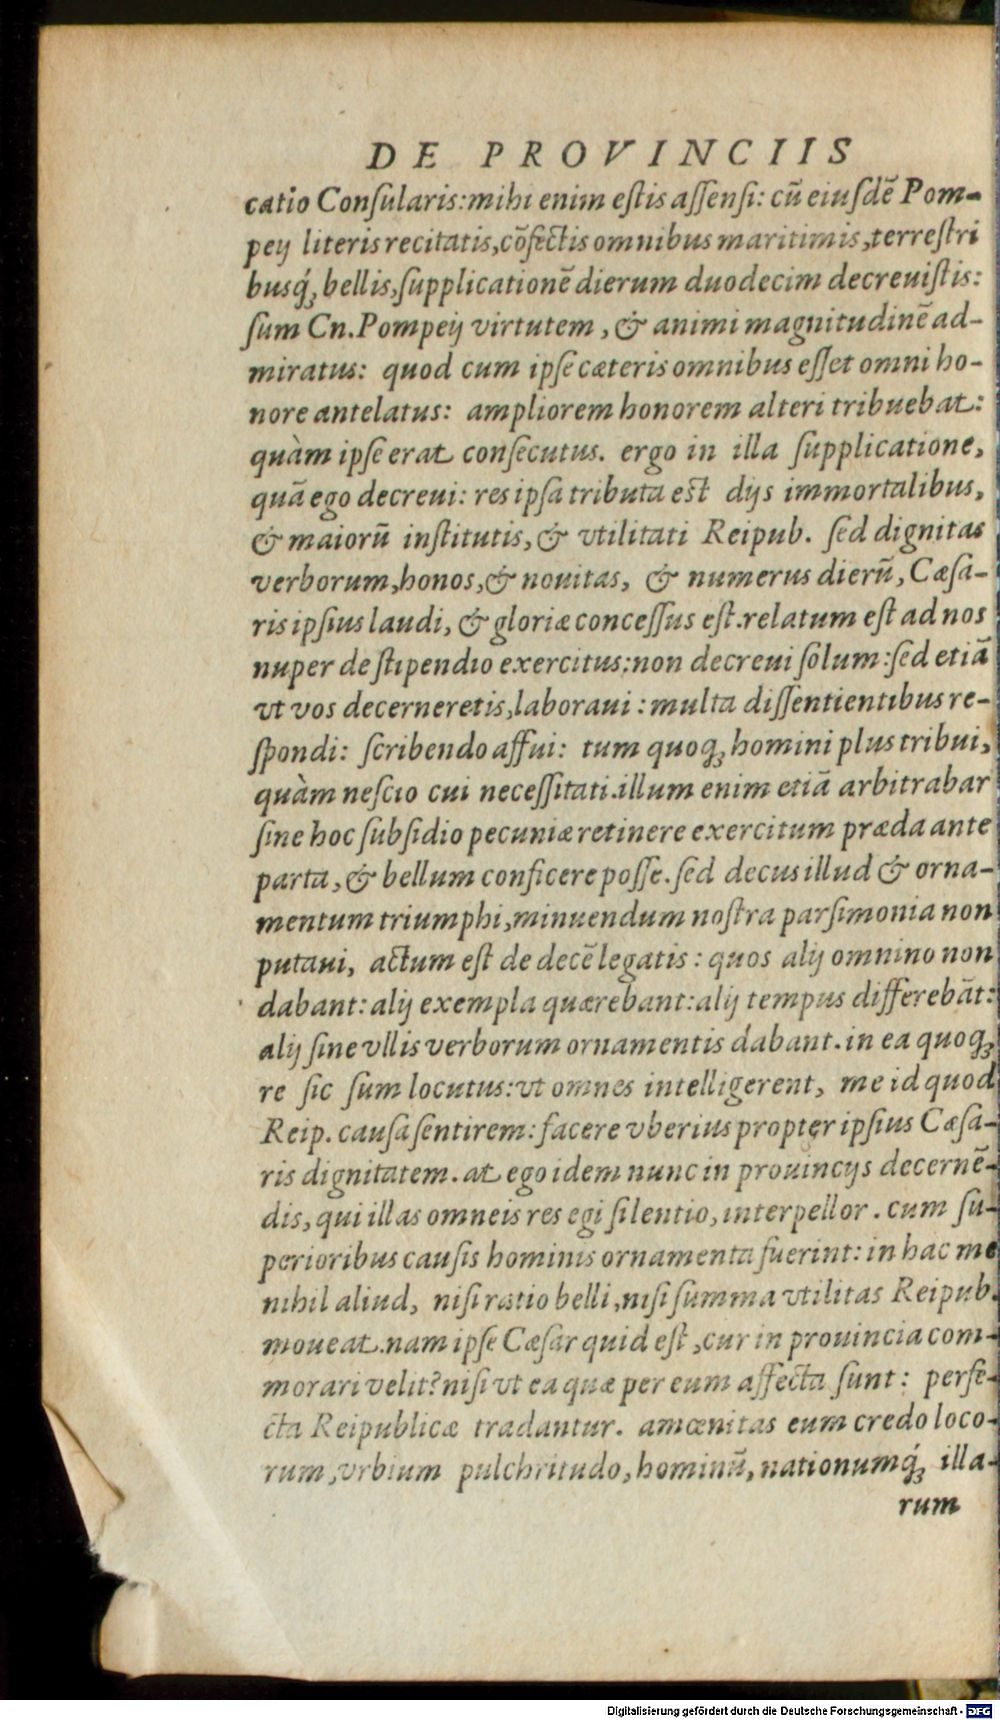 DE PROVINCIIS
catio Conſularis:mihi enim eſtis aſſenſi: cū eiuſdē Pom-
peij literis recitatis,cōfectis omnibus maritimis,terreſtri
busq́ꝫ bellis,ſupplicationē dierum duodecim decreuiſtis:
ſum Cn.Pompeij virtutem, & animi magnitudinē ad-
miratus: quod cum ipſe cæteris omnibus eſſet omni ho-
nore antelatus: ampliorem honorem alteri tribuebat:
quàm ipſe erat conſecutus. ergo in illa ſupplicatione,
quā ego decreui: res ipſa tributa est dijs immortalibus,
& maiorū inſtitutis, & vtilitati Reipub. ſed dignitas
verborum,honos,& nouitas, & numerus dierū, Cæſa-
ris ipſius laudi, & gloriæ conceſſus eſt.relatum eſt ad nos
nuper de ſtipendio exercitus:non decreui ſolum:ſed etiā
vt vos decerneretis,laboraui: multa diſſentientibus re-
ſpondi: ſcribendo affui: tum quoqꝫ homini plus tribui,
quàm neſcio cui neceſſitati.illum enim etiā arbitrabar
ſine hoc ſubſidio pecuniæ retinere exercitum præda ante
parta, & bellum conficere poſſe. ſed decus illud & orna-
mentum triumphi,minuendum noſtra parſimonia non
putaui, actum eſt de decē legatis: quos alij omnino non
dabant: alij exempla quærebant:alij tempus differebāt:
alij ſine vllis verborum ornamentis dabant. in ea quoqꝫ
re ſic ſum locutus:vt omnes intelligerent, me id quod
Reip. cauſa ſentirem: facere vberius propter ipſius Cæſa-
ris dignitatem. at ego idem nunc in prouincijs decernē-
dis, qui illas omneis res egi ſilentio, interpellor. cum ſu-
perioribus cauſis hominis ornamenta fuerint: in hac me
nihil aliud, niſi ratio belli,niſi ſumma vtilitas Reipub.
moueat.nam ipſe Cæſar quid eſt,cur in prouincia com-
morari velit?niſi vt ea quæ per eum affecta ſunt: perfe-
cta Reipublicæ tradantur. amœnitas eum credo loco-
rum,vrbium pulchritudo,hominū, nationumq́ꝫ illa-
rum
Digitalisierung gefördert durch die Deutsche Forschungsgemeinschaft - DFG